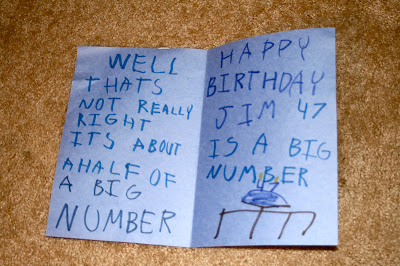 WELL
THATS
NOT REALLY
RIGHT
ITS ABOUT
A HALF OF
A BIG
NUMBER
HAPPY
BIRTHDAY
JIM 47
IS A BIG
NUMBER
43